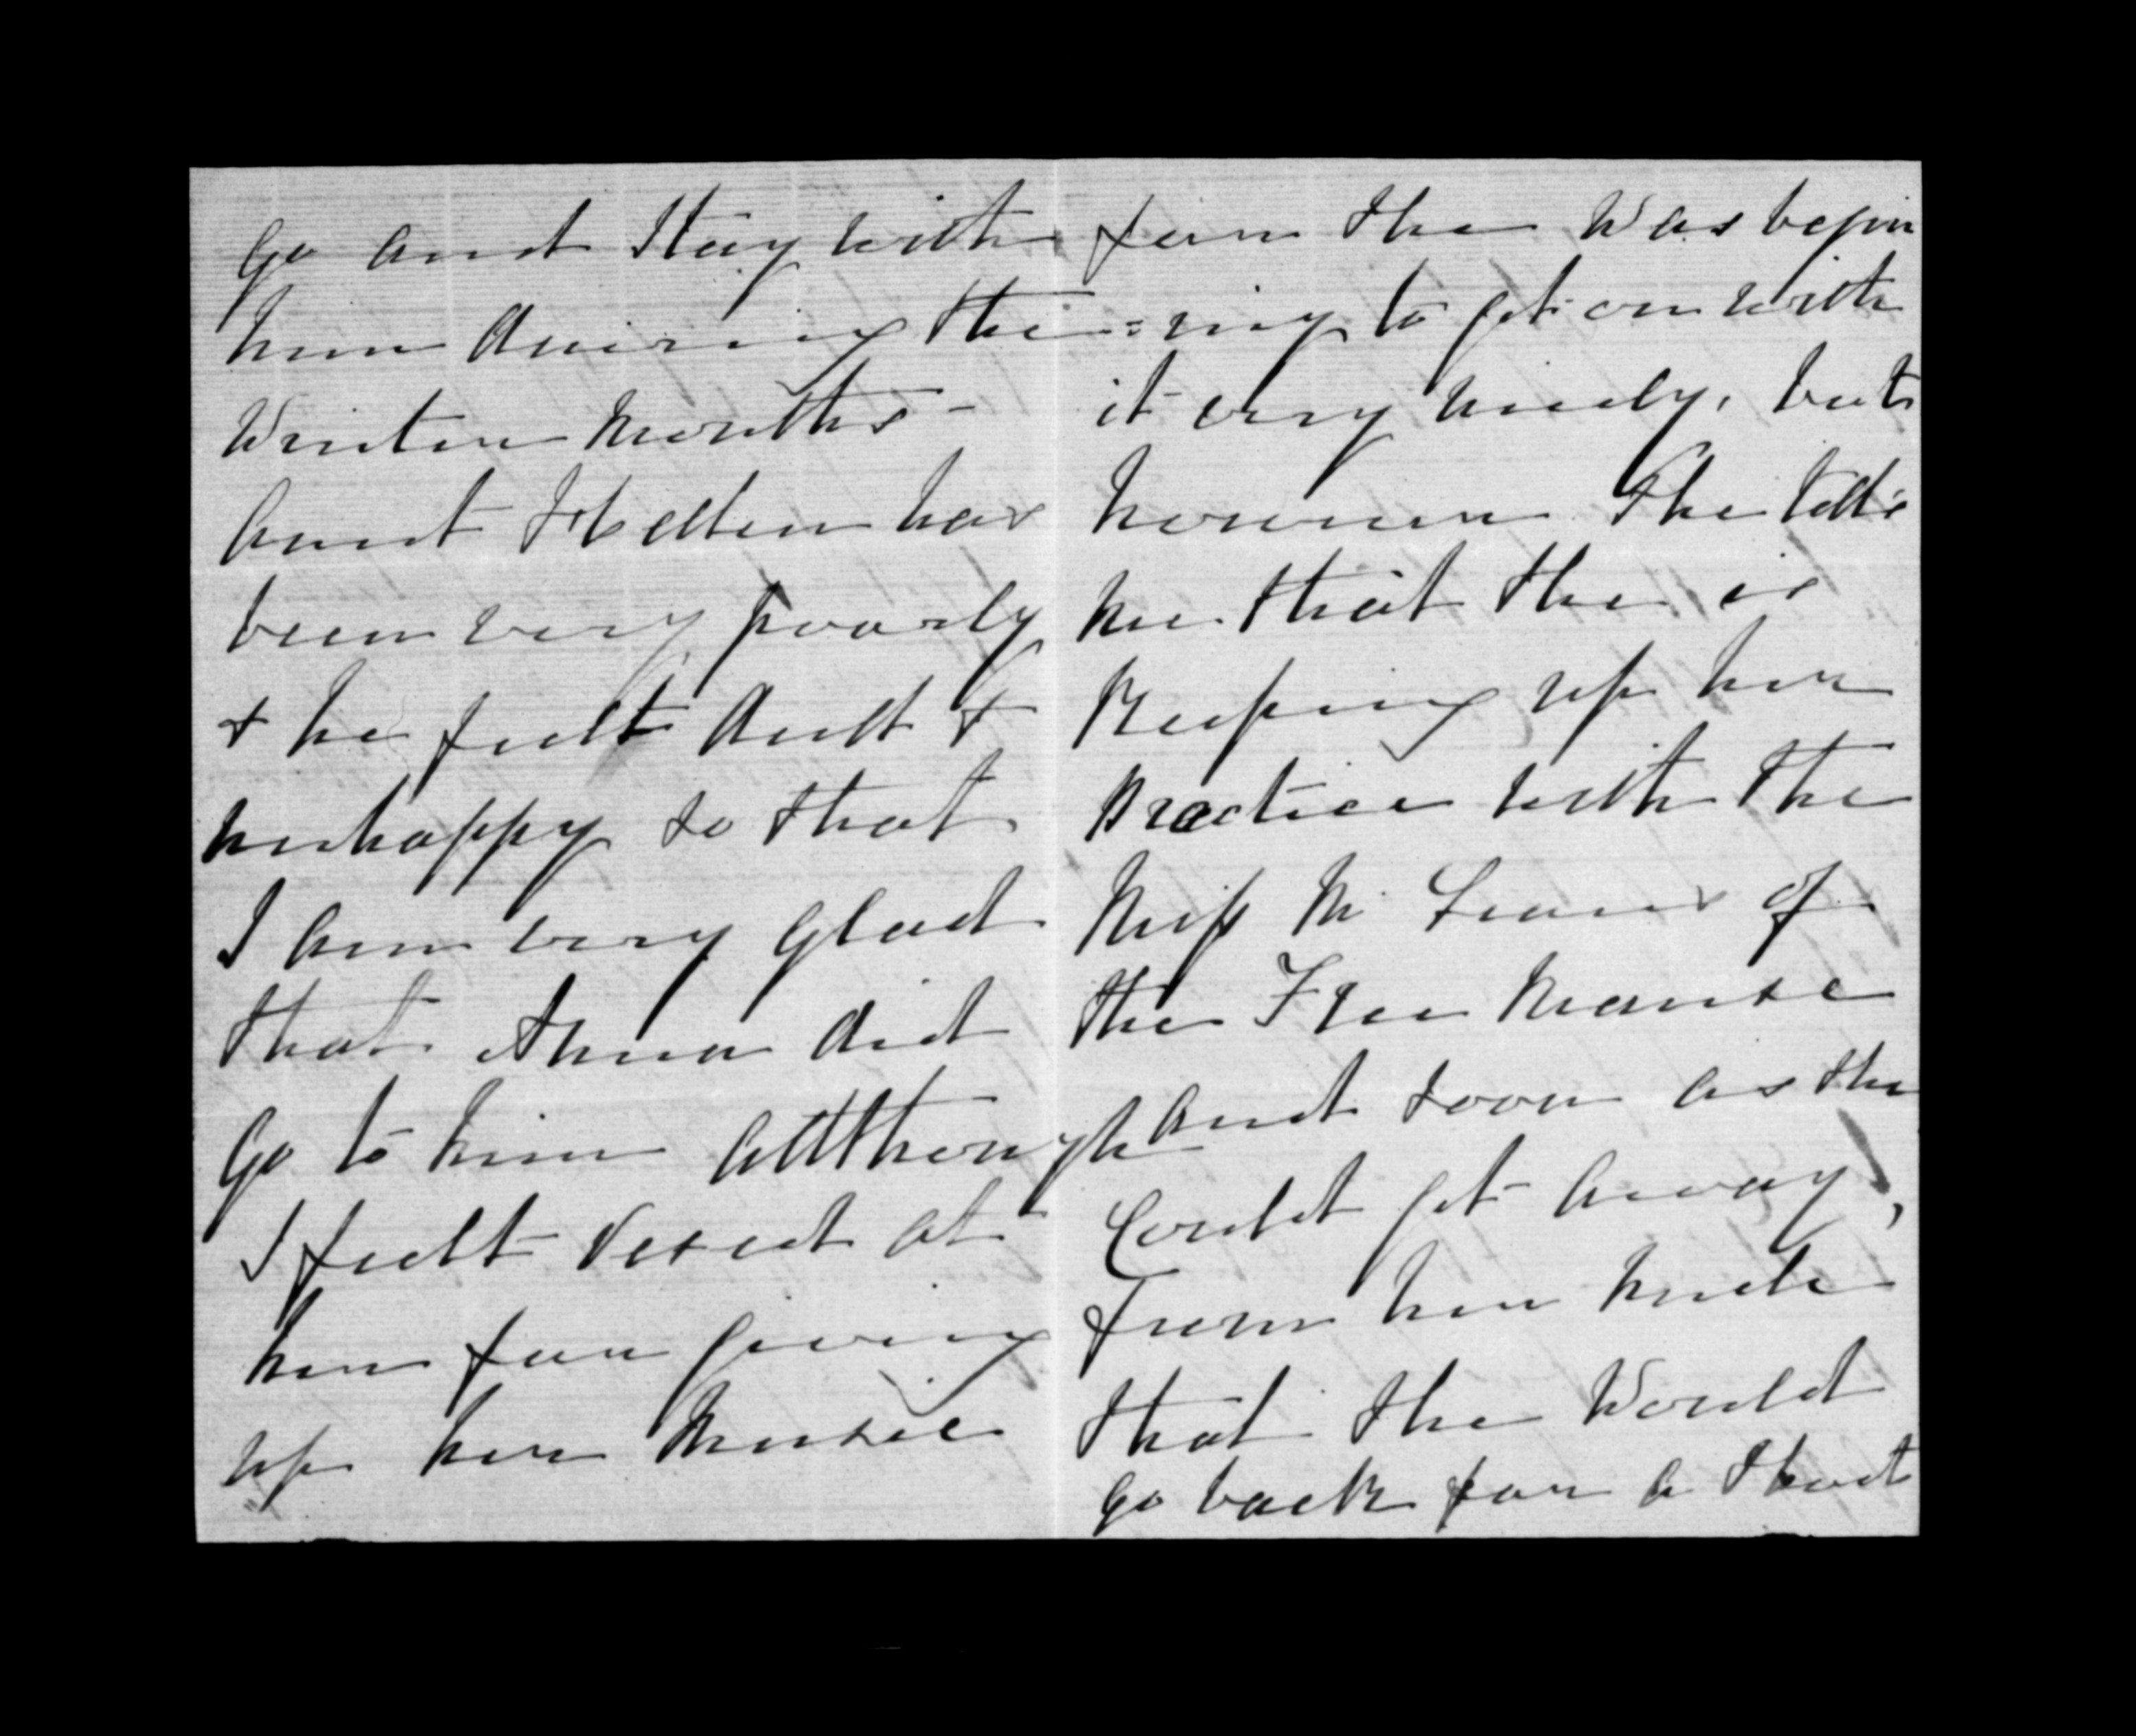 Go and Stay with
him during the
Winter Months -
Aunt Hellen has
been very poorly
& he fellt dull &
unhappy so that
I am very glad
that Anna did
go to him allthough
I fellt Vexed at
her for giving
up her Music
for she was begin
=ning to get on with
it very nicely, but
however she tells
me that she is
Keeping up her
practice with the
Miss Mc Leans of
the Free Manse
and soon as she
Could get away,
from her Uncle
that she Would
go back for a Short